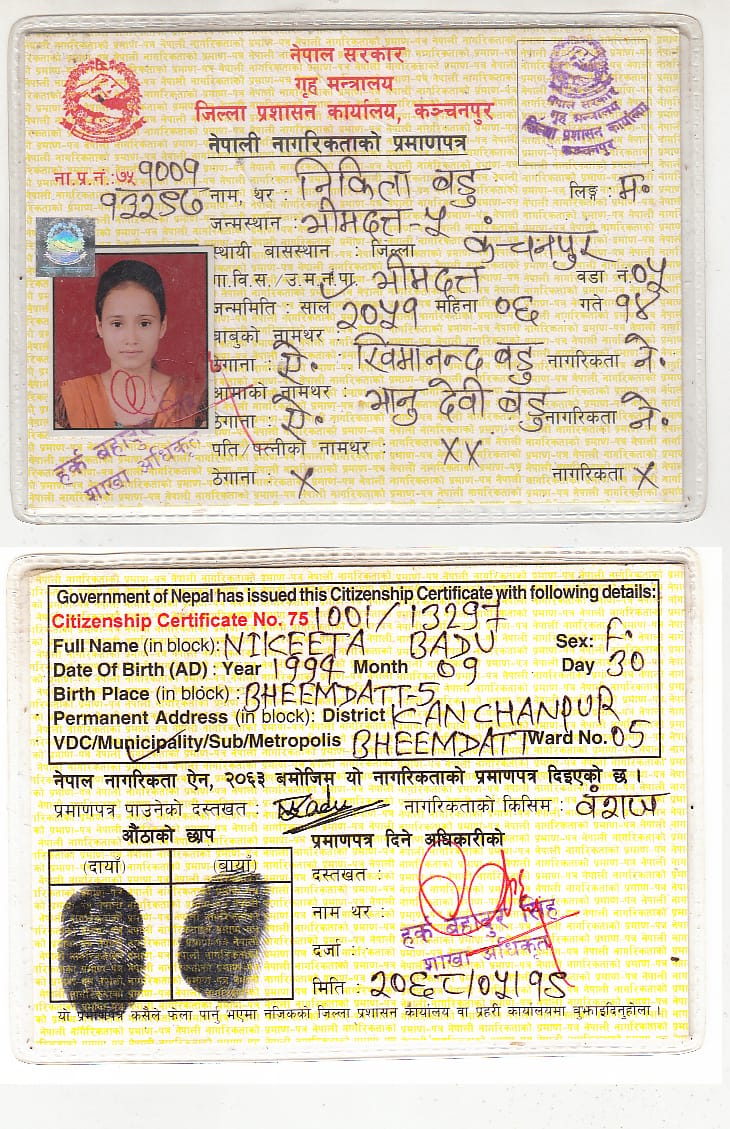 नेपाल सरकार
गृह मन्त्रालय
जिल्ला प्रशासन कार्यालय, कञ्चनपुर
नेपाली नागरिकताको प्रमाणपत्र
नेपाल सरकार
गृह मन्त्रालय
जिल्ला प्रशासन कार्यालय
कञ्चनपुर
ना.प्र.नं.: ७५ १००१
१३२९७
नाम, थर : निकिता बडु लिङ्ग : म.
जन्मस्थान : भीमदत्त-५
स्थायी बासस्थान : जिल्ला कंचनपुर
गा.वि.स./उ.म.न.पा. भीमदत्त वडा नं. ०५
जन्ममिति : साल २०५१ महिना ०६ गते १४
बाबुको नामथर :
ठेगाना : ऐ. खिमानन्द बडु नागरिकता ने.
आमाको नामथर :
ठेगाना : ऐ. भानु देवी बडु नागरिकता ने.
पति/पत्नीको नामथर : XX
ठेगाना : X नागरिकता X
हर्क बहादुर सिंह
शाखा अधिकृत
Government of Nepal has issued this Citizenship Certificate with following details:
Citizenship Certificate No. 75 1001/13297
Full Name (in block): NIKEETA BADU Sex: F.
Date Of Birth (AD) : Year 1994 Month 09 Day 30
Birth Place (in block) : BHEEMDATT-5
Permanent Address (in block): District KANCHANPUR
VDC/Municipality/Sub/Metropolis BHEEMDATT Ward No. 05
नेपाल नागरिकता ऐन, २०६३ बमोजिम यो नागरिकताको प्रमाणपत्र दिइएको छ ।
प्रमाणपत्र पाउनेको दस्तखत : Badu नागरिकताको किसिम : वंशज
औंठाको छाप प्रमाणपत्र दिने अधिकारीको
(दायाँ) (बायाँ) दस्तखत :
नाम थर : हर्क बहादुर सिंह
दर्जा : शाखा अधिकृत
मिति : २०६८/०५/१९
यो प्रमाणपत्र कसैले फेला पार्नु भएमा नजिकको जिल्ला प्रशासन कार्यालय वा प्रहरी कार्यालयमा बुझाइदिनुहोला ।